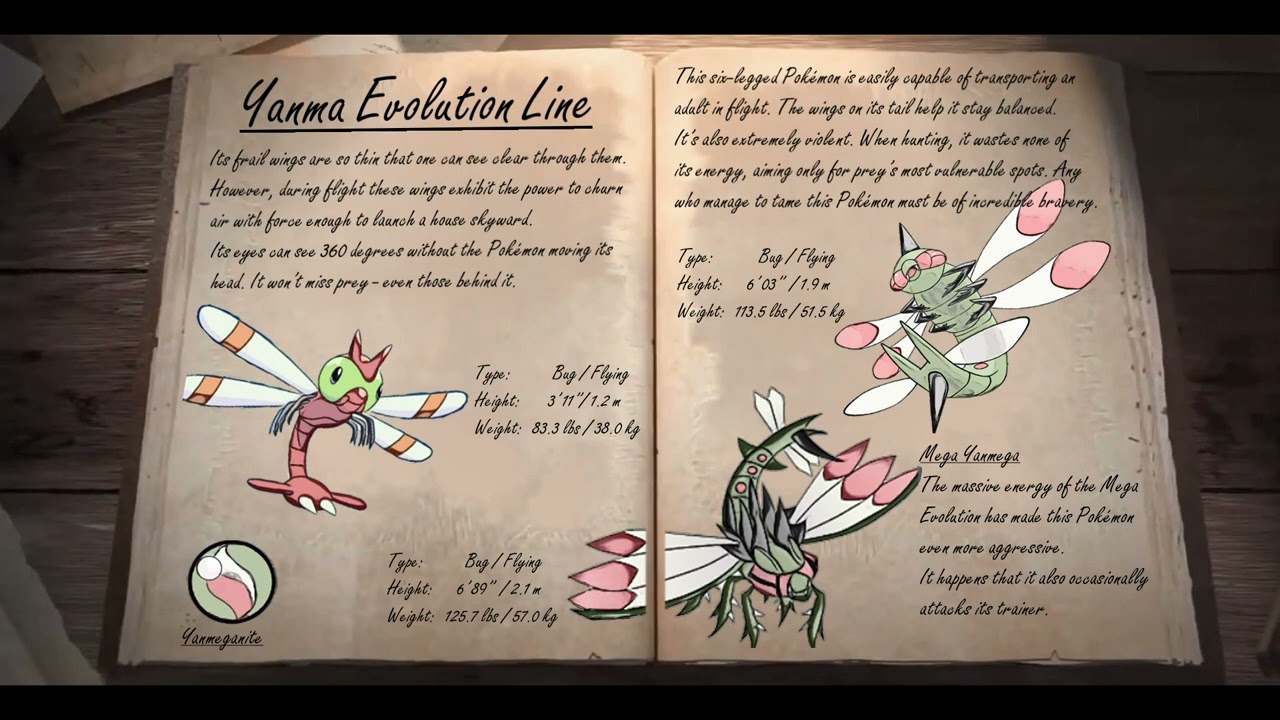 Yanma Evolution Line
Its frail wings are so thin that one can see clear through them.
However, during flight these wings exhibit the power to churn
air with force enough to launch a house skyward.
Its eyes can see 360 degrees without the Pokémon moving its
head. It won't miss prey – even those behind it.
Type: Bug / Flying
Height: 3'11"/ 1.2 m
Weight: 83.3 lbs / 38.0 kg
Type: Bug / Flying
Height: 6'89" / 2.1 m
Weight: 125.7 lbs / 57.0 kg
Yanmeganite
This six-legged Pokémon is easily capable of transporting an
adult in flight. The wings on its tail help it stay balanced.
It's also extremely violent. When hunting, it wastes none of
its energy, aiming only for prey's most vulnerable spots. Any
who manage to tame this Pokémon must be of incredible bravery.
Type: Bug / Flying
Height: 6'03" / 1.9 m
Weight: 113.5 lbs / 51.5 kg
Mega Yanmega
The massive energy of the Mega
Evolution has made this Pokémon
even more aggressive.
It happens that it also occasionally
attacks its trainer.